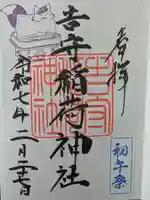 奉拝
初午祭
吉守稲荷神社
令和七年二月二十七日